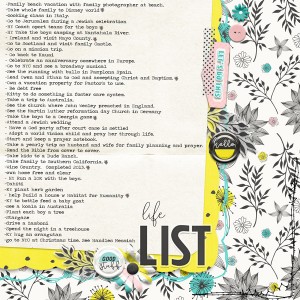 -Family beach vacation with family photographer at beach.
-Take whole family to Disney world
-Cooking class in Italy.
-Go to Jerusalem during a Jewish celebration
-KT Coach sport teams for the boys
-KT Take the boys camping at Nantahala River.
- Ireland and visit Mayo County.
-Go to Scotland and visit Family Castle.
-Go on a mission
- Go back to Kauai
- Celebrate an anniversary somewhere in Europe.
-Go to NYC and see a broadway musical
-See the running with bulls in Pamplona Spain.
-Lead and friend to God and seeing Christ and Baptism
-Own a vacation property for Pastors to use.
- Be debt free
-Kitty to do something in foster care system
-Take a trip to Australia.
-See the church where John Wesley preached in England.
-See the Martin luther reformation day Church in Germany
-Take the boys to a Georgia game
-Attend a Jewish wedding
- Have a God party after court case is settled
- Adopt a world vision child and pray her through life.
-Start and keep a prayer notebook.
-Take a yearly trip as husband and wife for family planning and prayer
-Read the Bible from cover to cover.
-Take kids to a Dude Ranch.
-Take family to Southern California.
-Wine Country. Completed 2013
-own home free and clear
- KT Run a 10K with the boys.
-Tahiti
-KT plant herb garden
- help Build a house w Habitat for Humanity
-KT to bottle feed a baby goat
-see a koala in Australia
-Plant each boy a tree
-Prague
-drive a Dansect
-Spend the night in a treehouse
-KT hug an orangutan
-go to NYC at Christmas time. See Handles Messiah
hello
life
LIST
GOOD